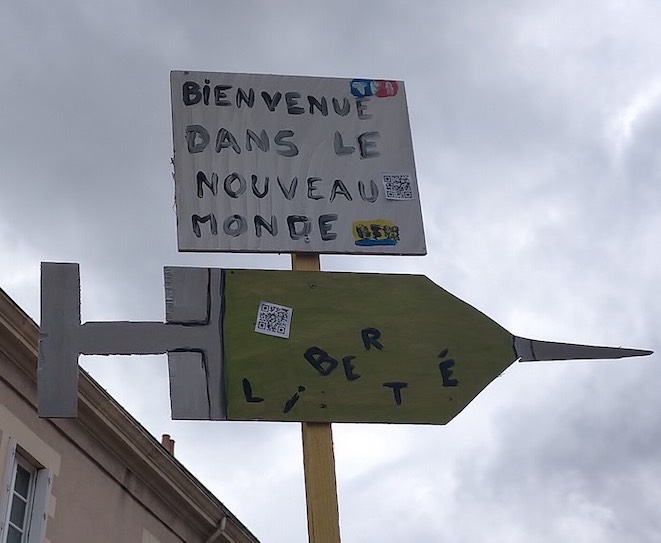 BiENVENUE
DANS LE
NOUVEAU
MONDE
LiBERTÉ